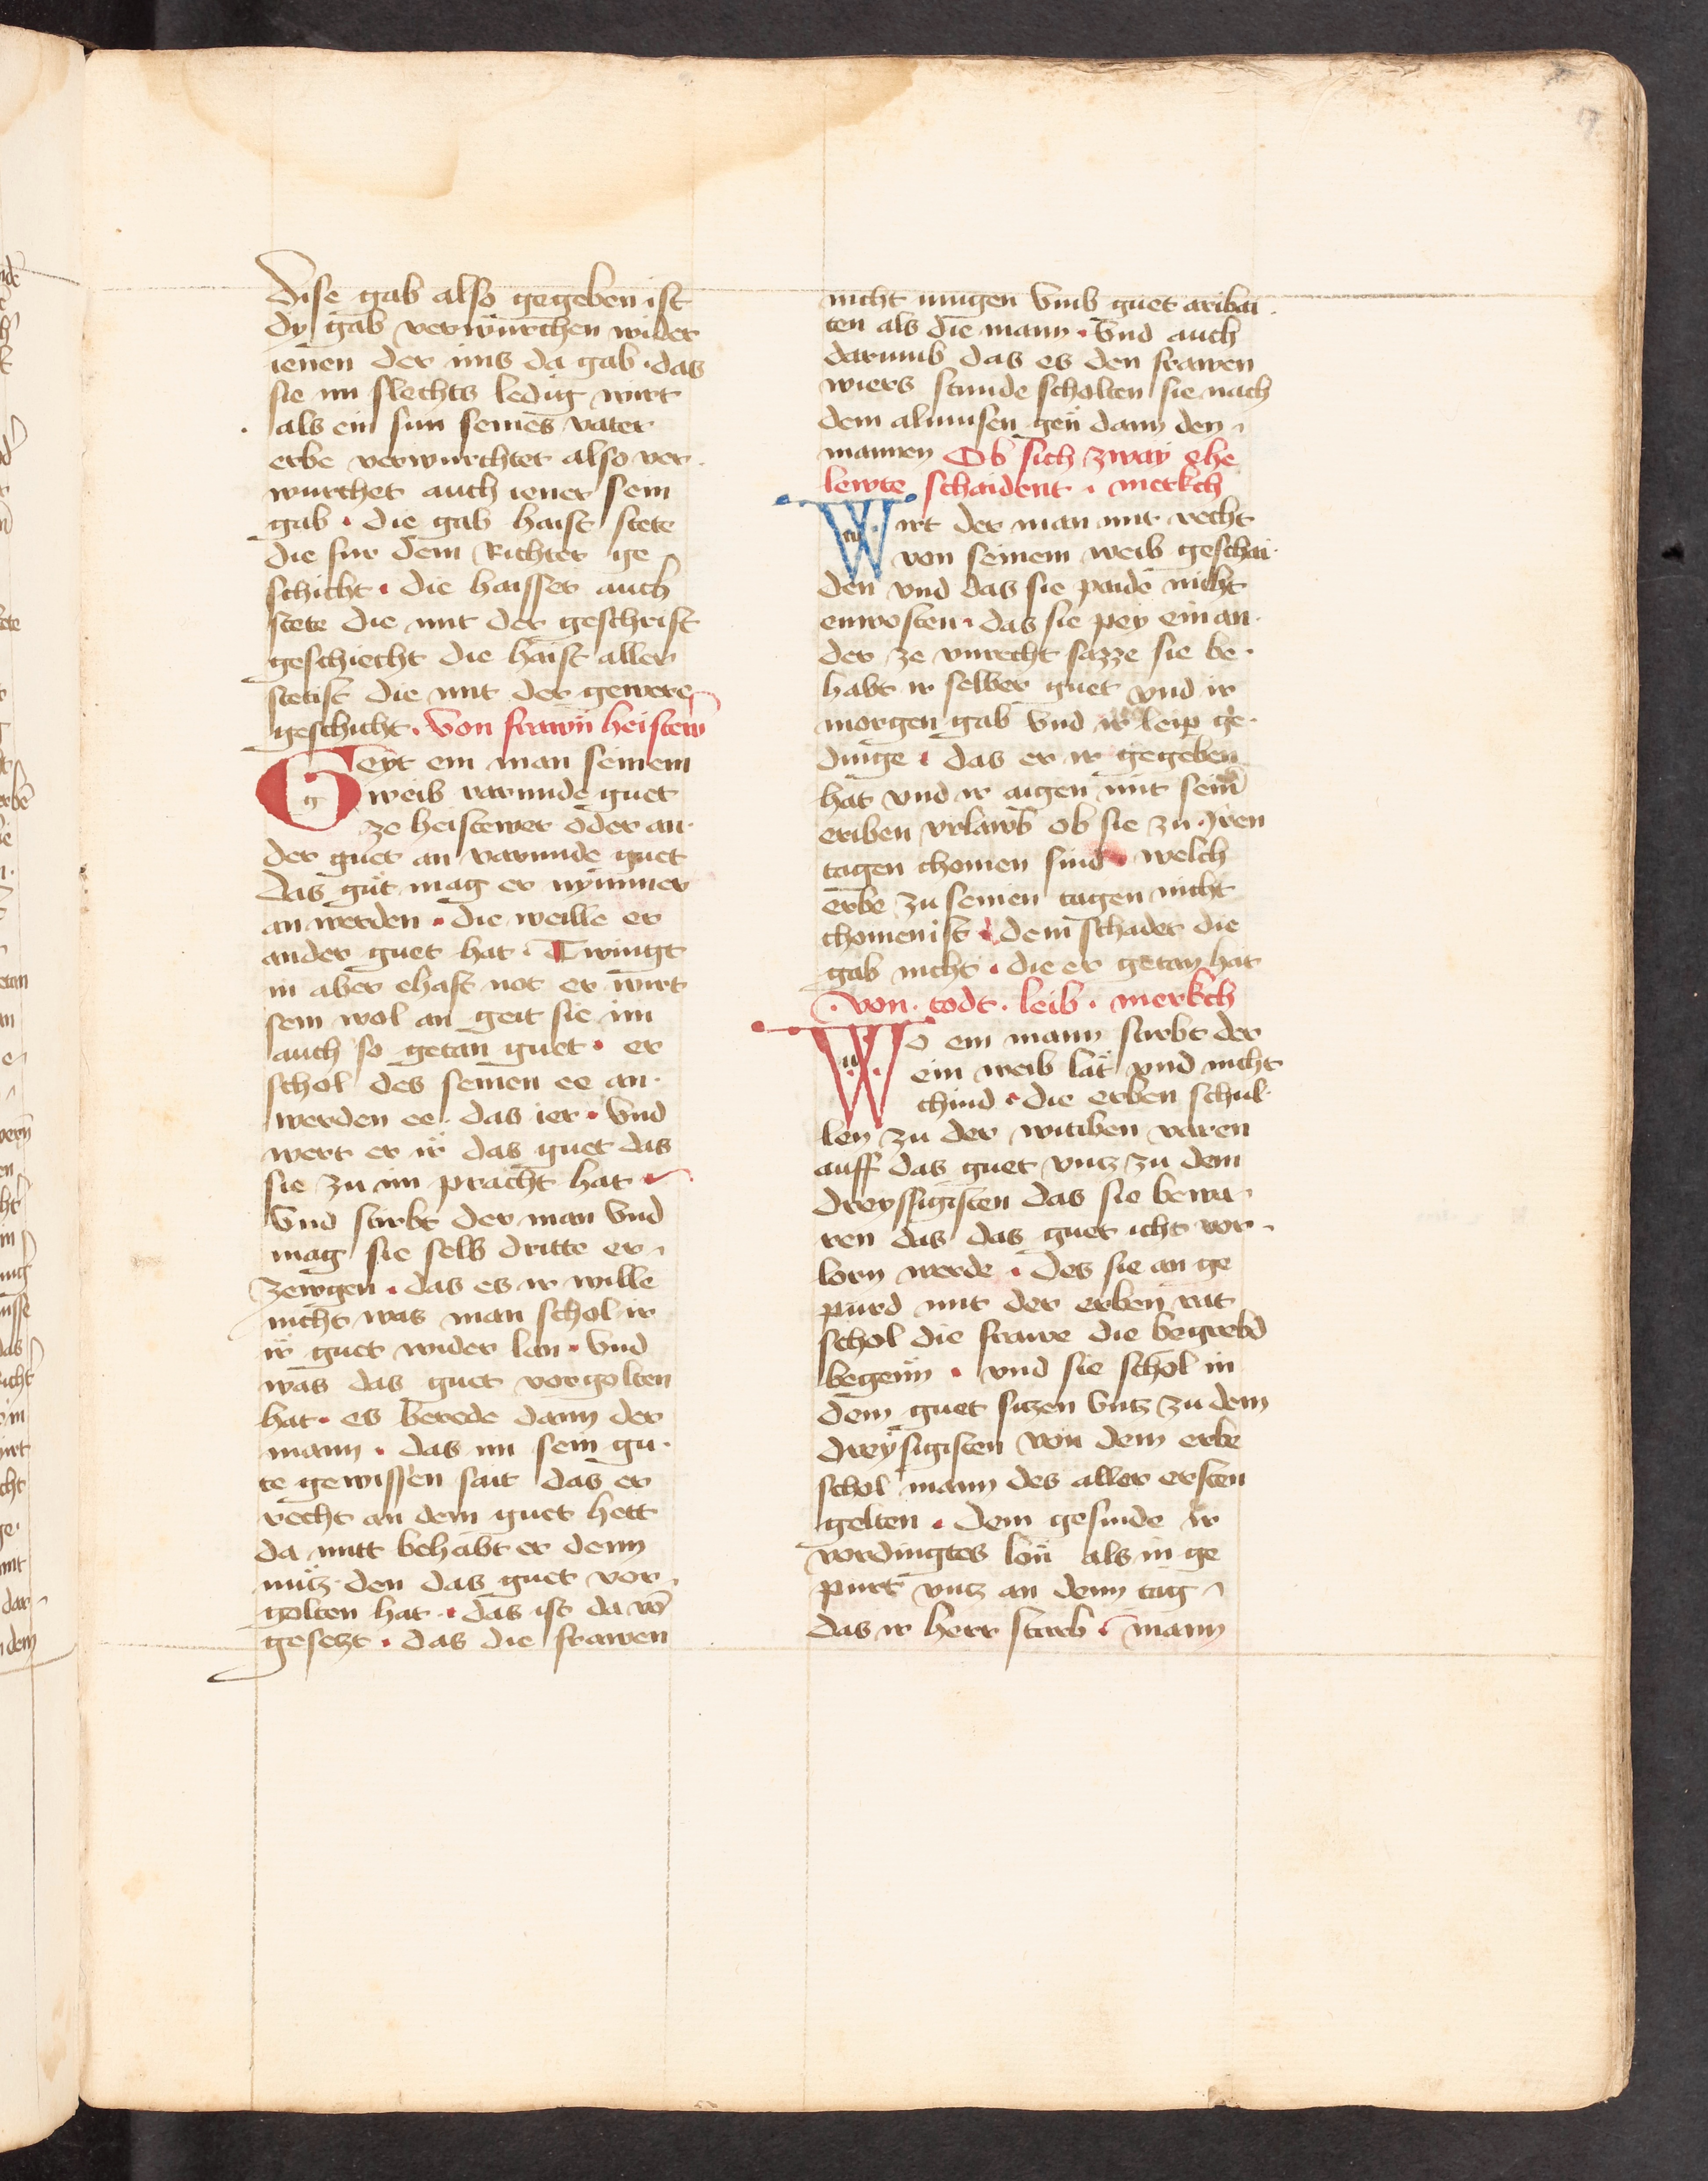 7
Dise gab also gegeben ist
dy gab verwurchen wider
ienen der ims da gab · das
sie im slechts ledig wirt
als ein sun seines vater
erbe verwurchtet also ver·
wurchet auch iener sein
gab · die gab haist stete
die fur dem Richter ge
schicht · die haisset auch
stete die mit der geschrift
geschiecht die haist aller
stetist die mit der gewere
geschicht · Von frawn heistewr
Geyt ein man seinem
weib varunde guet
ze heistewer oder an·
der guet an varunde guet
das gut mag er nymmer
an werden · die weille er
ander guet hat · Twingt
in aber ehaft not er wirt
sein wol an geit sie im
auch so getan guet · er
schol des seinen ee an·
werden ee das ier · Vnd
wert er ir das guet das
sie zu im pracht hat ·
Vnd stirbt der man Vnd
mag sie selb dritte er
zewgen · das es ir wille
nicht was man schol ir
ir guet wider lan · Vnd
was das guet vergolten
hat · es berede dann der
mann · das im sein gu·
te gewissen sait das er
recht an dem guet hett
da mitt behabt er denn
nutz den das guet ver
golten hat · das ist da vō
gesetzt · das die frawen
nicht mugen Vmb guet aribai
ten als die mann · Vnd auch
darumb das es den frawen
wiers stunde scholten sie nach
dem almusen gen dann den
mannen Ob sich zway ehe
lewte schaident · merkch
Wirt der man mit recht
von seinem weib geschai·
den vnd das sie paide nicht
enwesten · das sie pey ein an·
der ze vnrecht sazze sie be·
habt ir selber guet vnd ir
morgen gab Vnd ir leip ge·
dinge · das er ir gegeben
hat vnd ir aigen mit seinē
eriben vrlawb ob sie zu Iren
tagen chomen sind · welch
erbe zu seinen tagen nicht
chomen ist · dem schadet die
gab nicht · die er getan hat
· von · todt · leib · merkch
Wo ein mann stirbt der
ein weib lat vnd nicht
chind · die erben schul·
len zu der witiben varen
auff das guet vntz zu dem
dreyssigisten das sie bewa
ren das das guet icht ver
lorn werde · Des sie an ge
purd mit der erben rat
schol die frawe die begrebd
begenn · vnd sie schol in
dem guet sitzen Vntz zu dem
dreysigisten von dem erbe
schol mann des aller ersten
gelten · dem gesinde ir
verdingtes lon als in ge
purt vntz an denn tag
das ir herr starb · mann